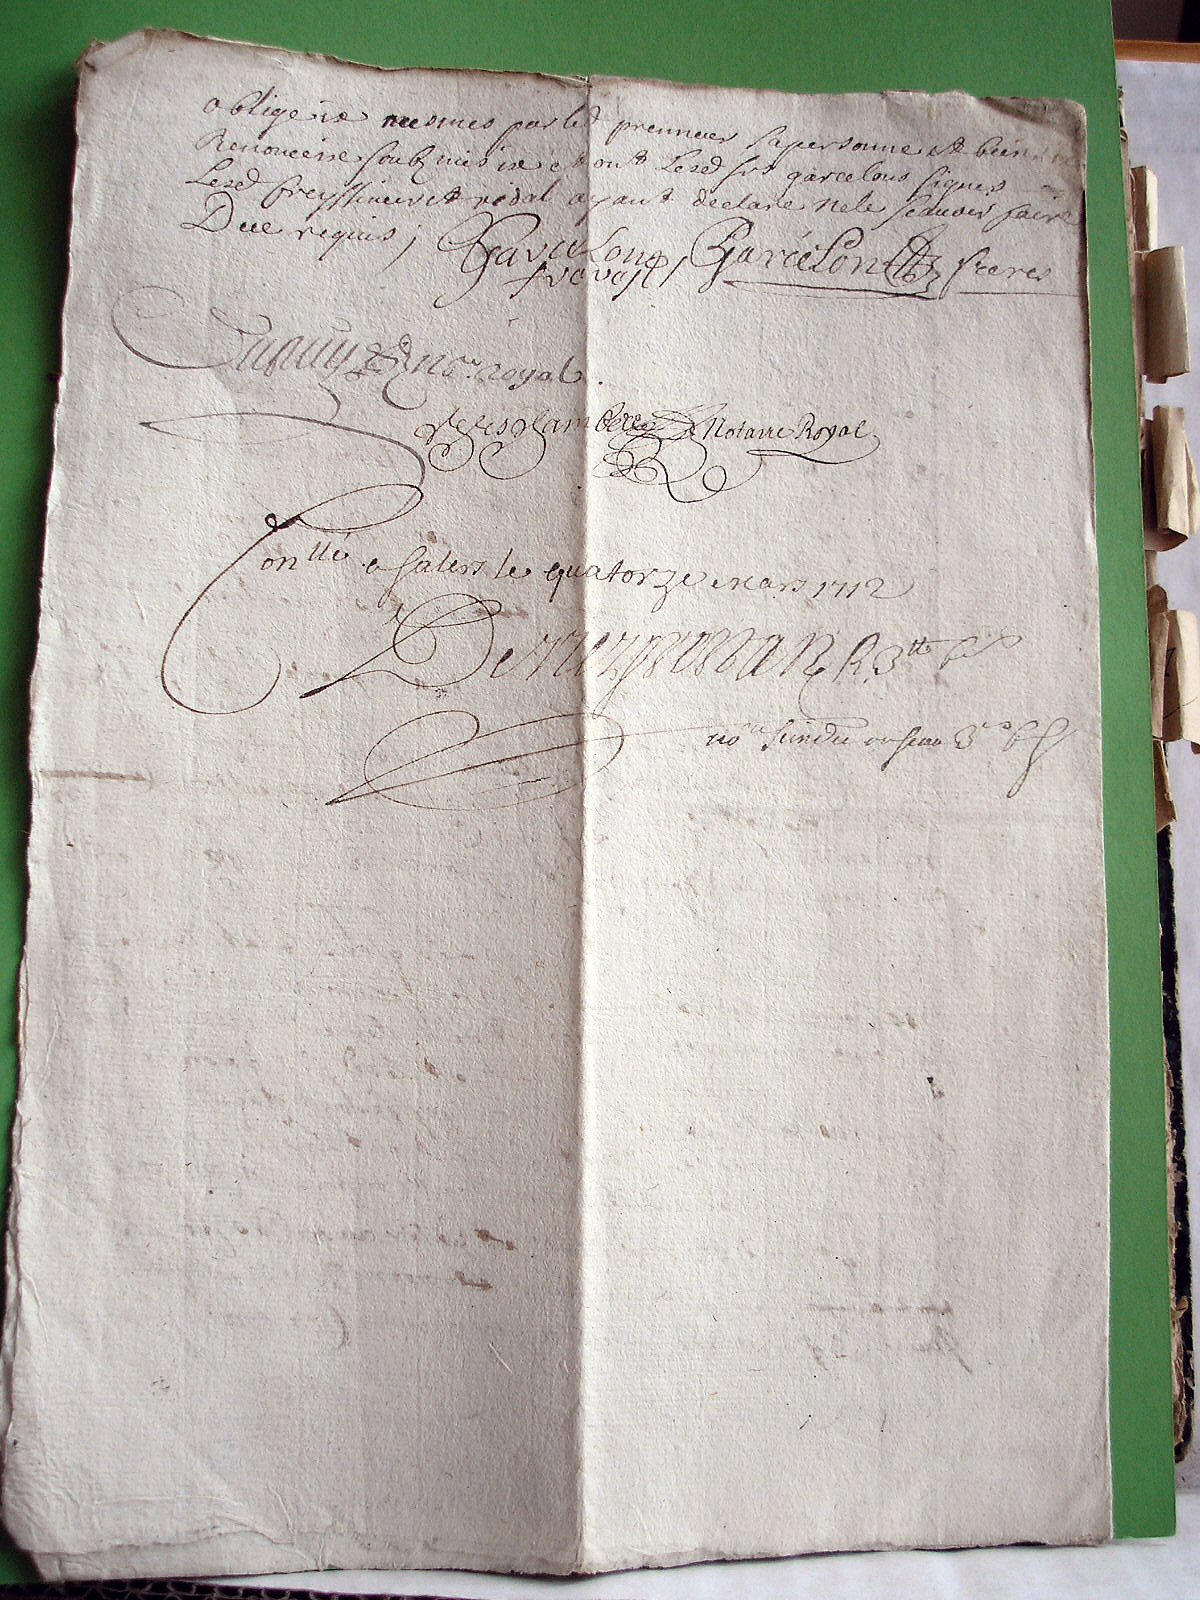 obligeire mesmes par led premier sa personne et biens
Renonceire soubzmisire et ont Lesd srs garcelons signes
Lesd freyssineus et vidal ayant declare ne le scavoir faire
Due requis ;
Garcelon prevost, Garcelon freres
Dupuy nore royal
Notaire Royal
Conllé a Salers le quatorze mars 1712
R 3tt